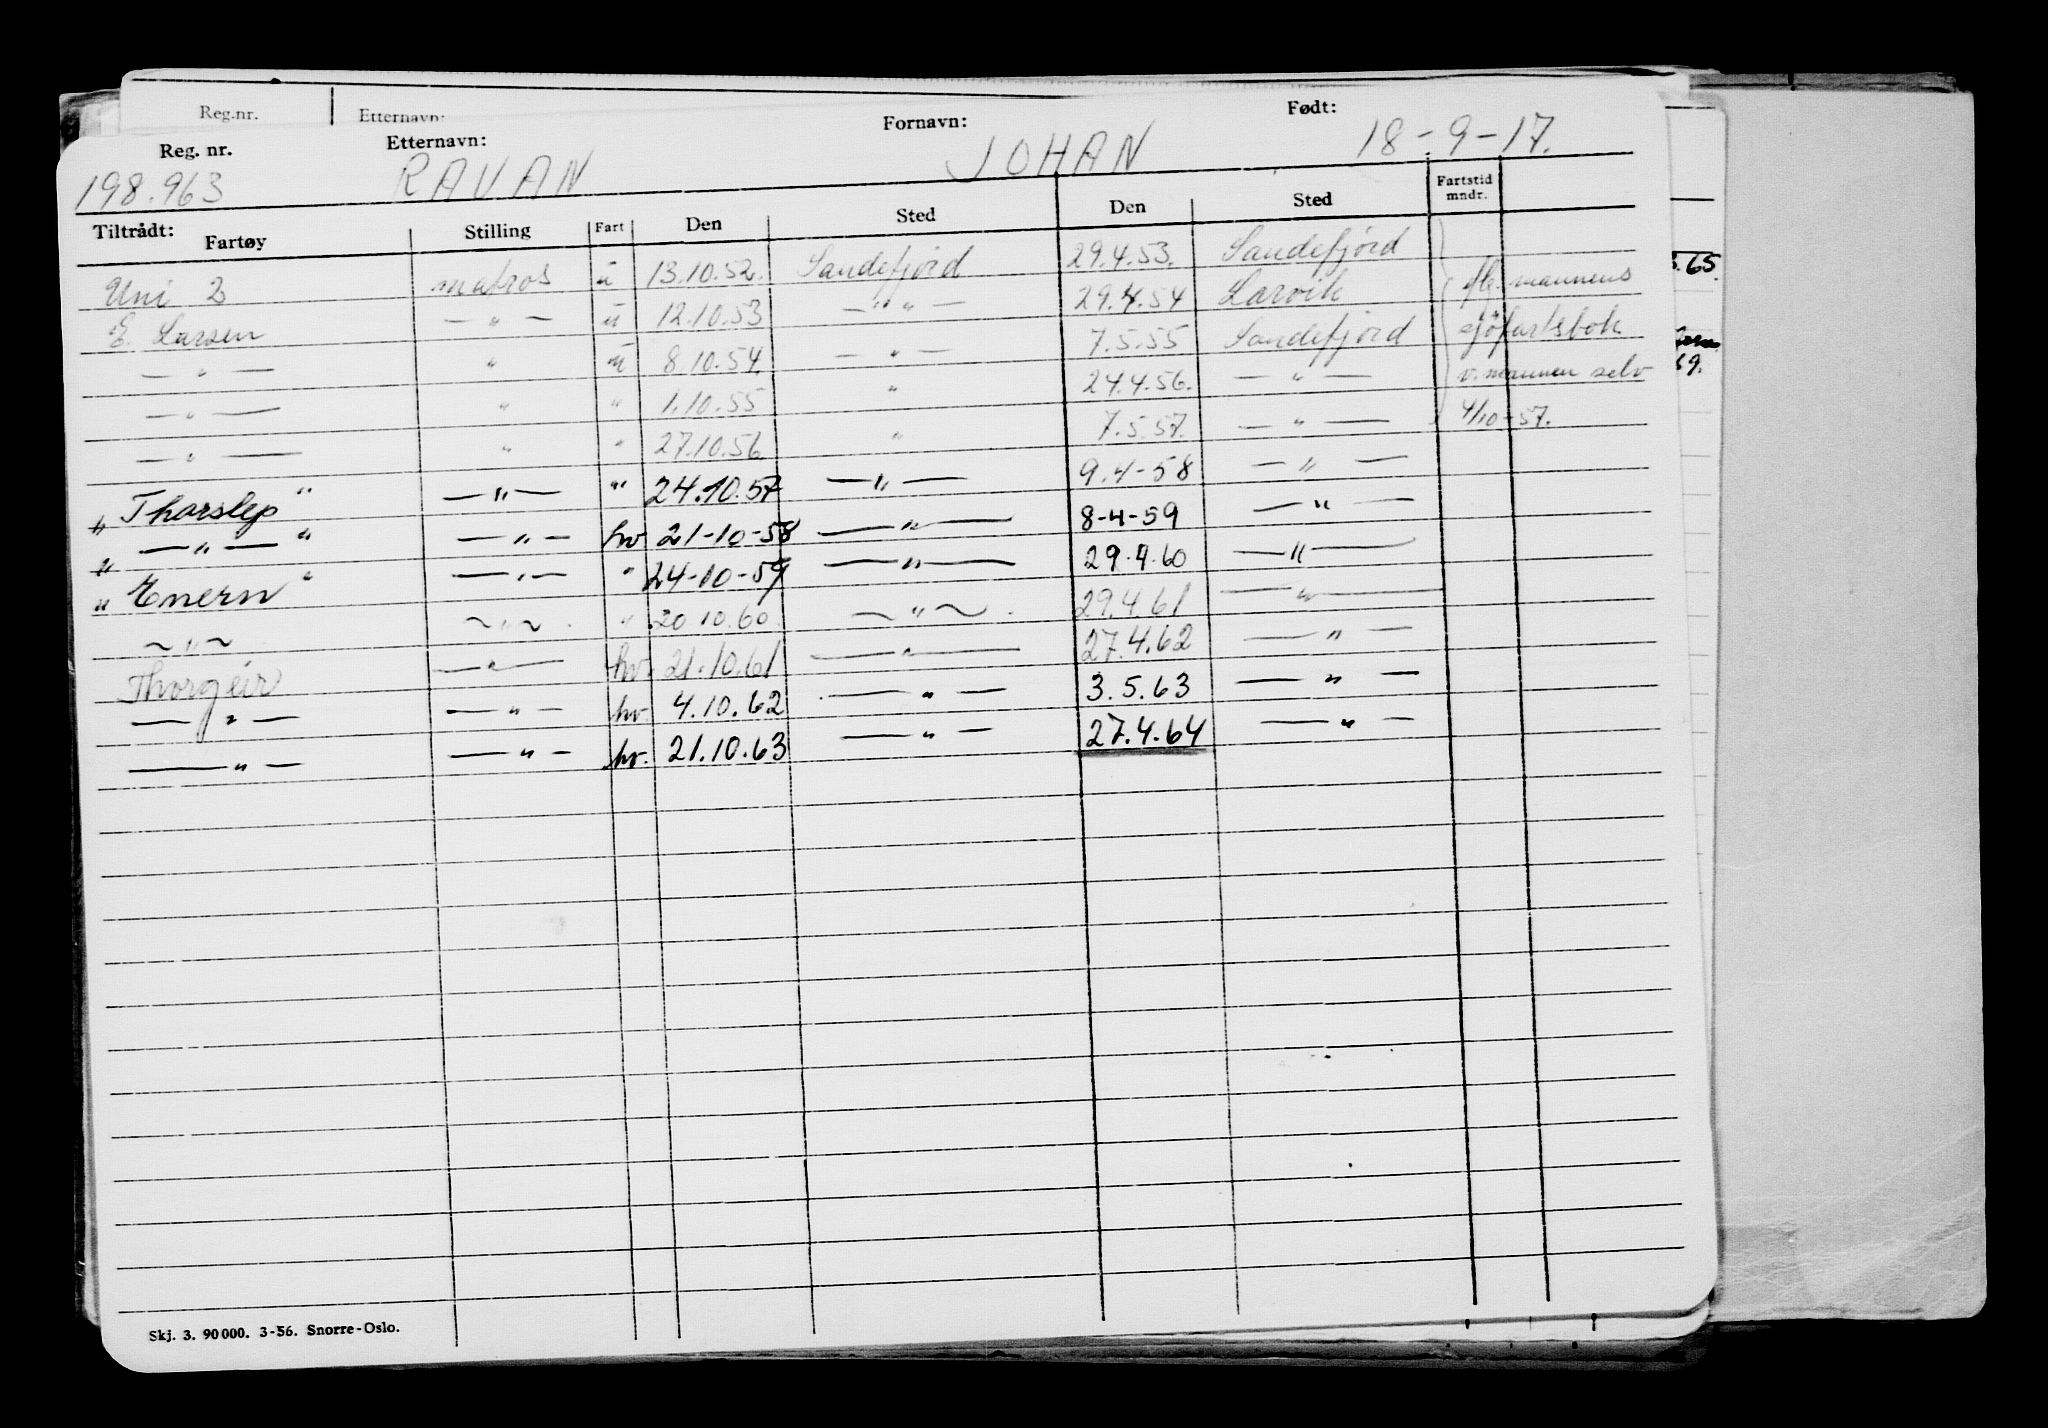 Reg.nr. Etternavn:
Reg. nr. Etternavn: Fornavn: Født:
198.963 RAVAN JOHAN 18-9-17.
Tiltrådt: Fartøy Stilling Fart Den Sted Den Sted Fartstid mndr.
Uni 2 matros u 13.10.52. Sandefjord 29.4.53. Sandefjord
E. Larsen — " — u 12.10.53 — " — 29.4.54 Larvik mannens
— " — " u 8.10.54. — " — 7.5.55 Sandefjord sjøfartsbok
— " — " " 1.10.55 " 24.4.56. — " — v. mannen selv
— " — " " 27.10.56 " 7.5.57. — " — 4/10-57.
" Thorslep " — " — " 24.10.57 — " — 9.4-58 — " —
" — " — " — " — hv 21-10-58 — " — 8-4-59 — " —
" Enern " — " — " 24-10-59 — " — 29.4.60 — " —
~ " ~ ~ " ~ " 20.10.60 ~ " ~ 29.4.61 — " —
Thorgeir — " — hv. 21.10.61 — " — 27.4.62 — " —
— " — — " — hv. 4.10.62 — " — 3.5.63 — " —
— " — — " — hv. 21.10.63 — " — 27.4.64 — " —
65.
69.
Skj. 3. 90000. 3-56. Snorre-Oslo.